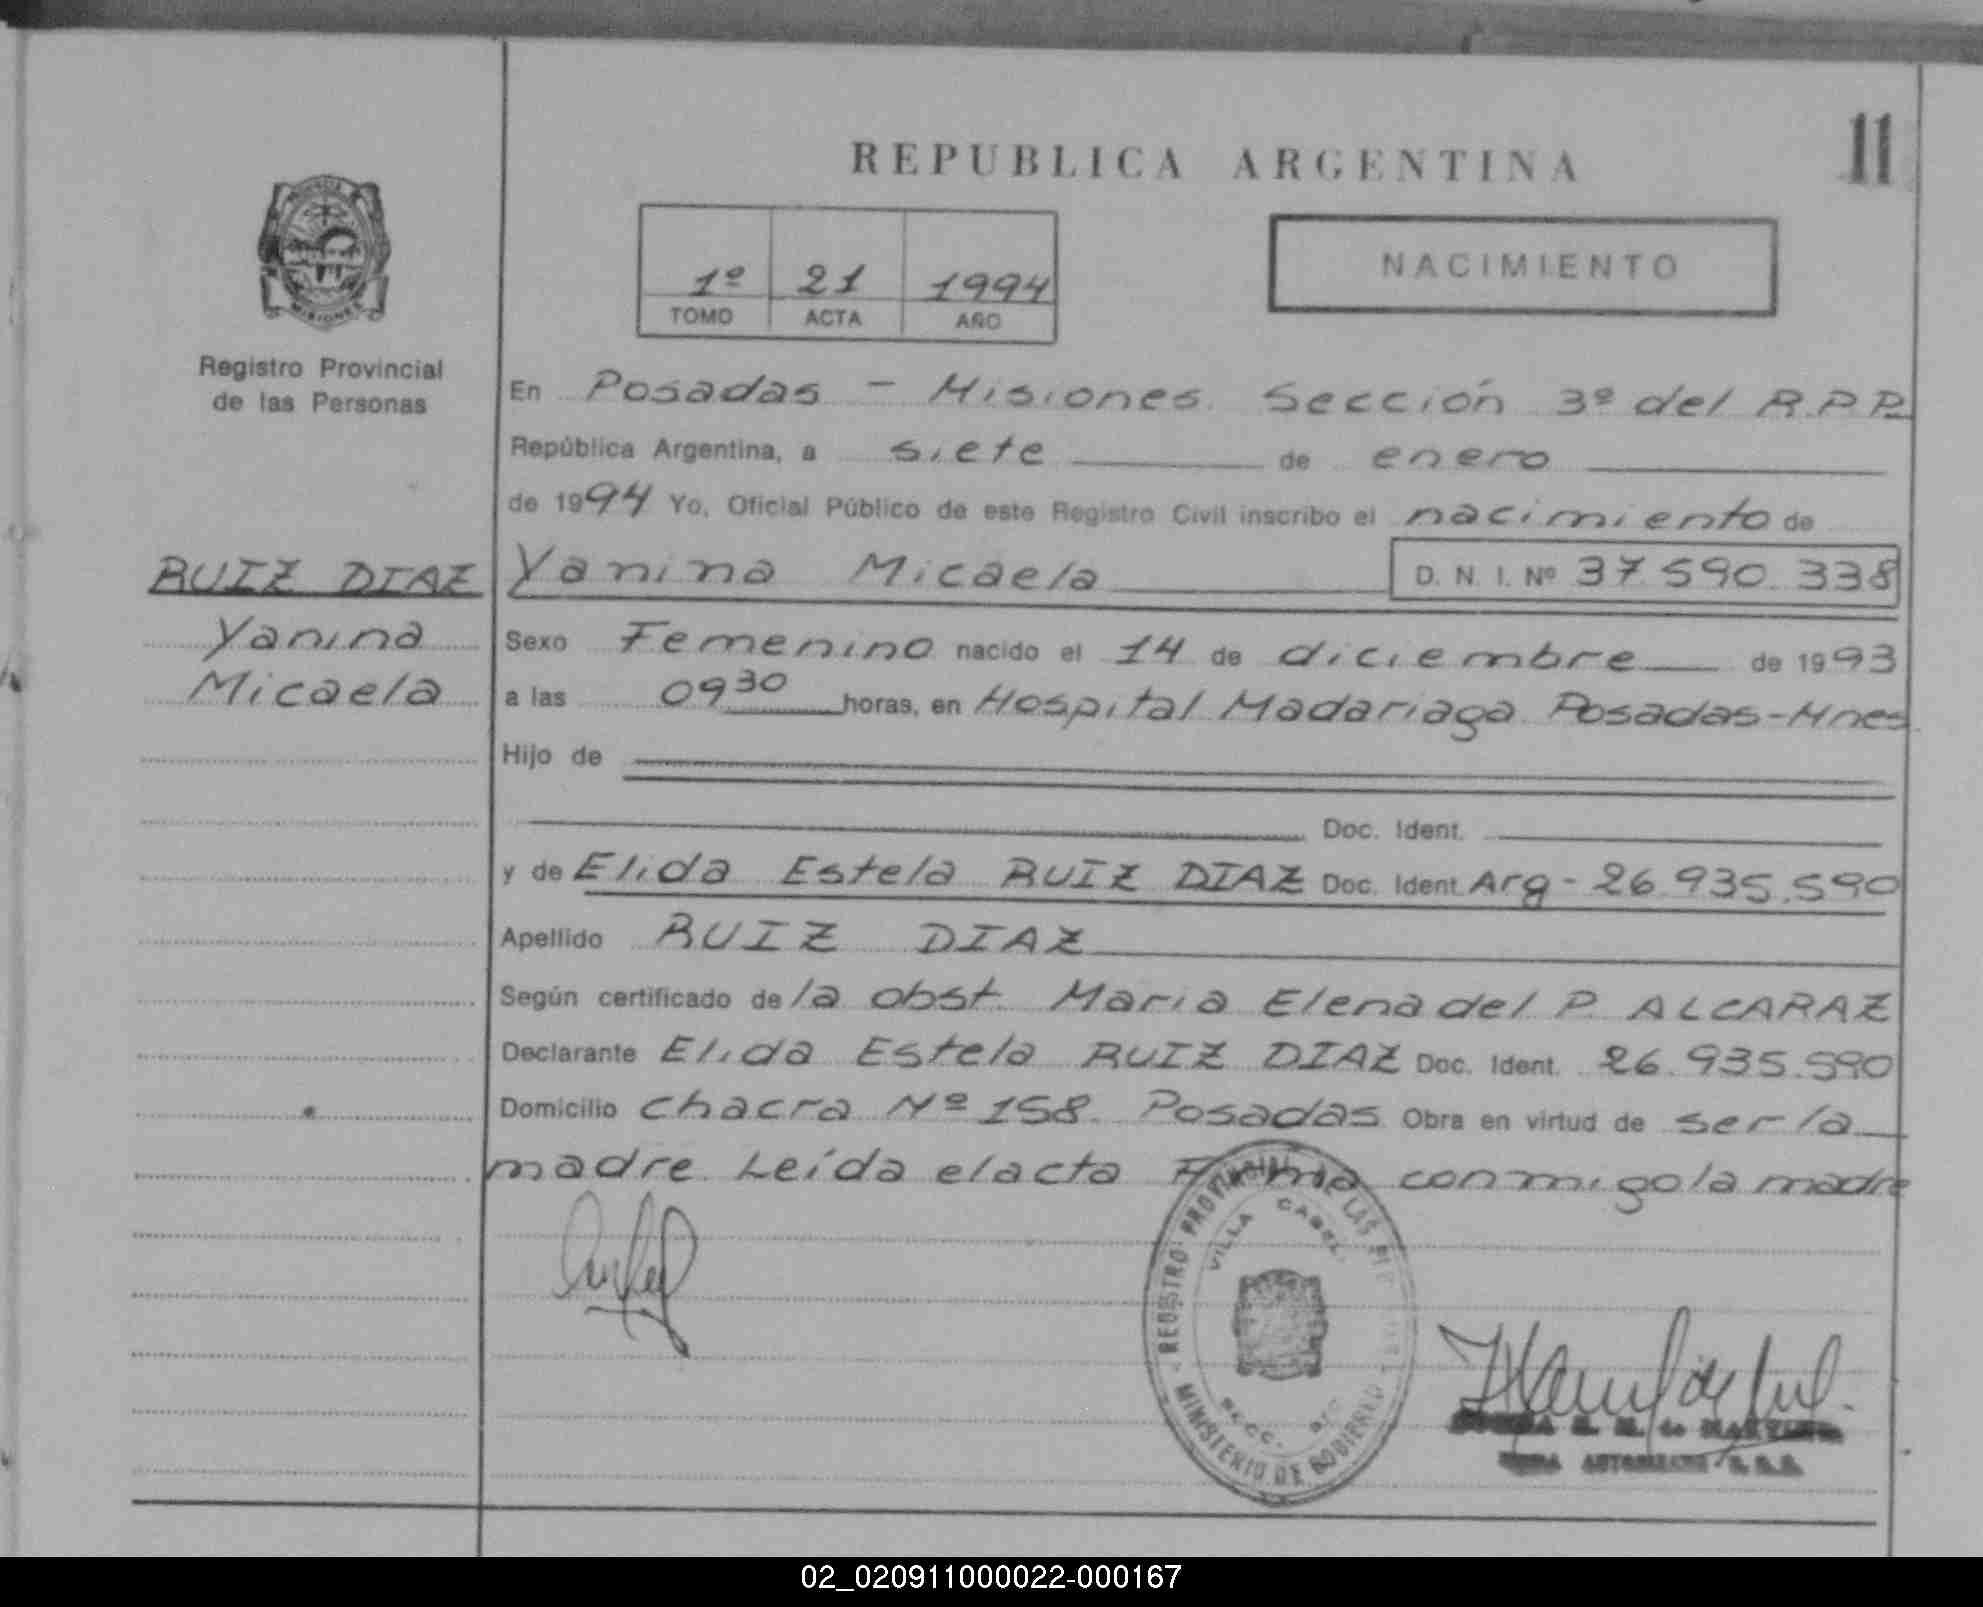 REPUBLICA ARGENTINA
11
NACIMIENTO
1º 21 1994
TOMO ACTA AÑO
MISIONES
Registro Provincial
de las Personas
En Posadas - Misiones. Sección 3º del R.P.P.
República Argentina, a siete de enero
de 1994 Yo, Oficial Público de este Registro Civil inscribo el nacimiento de
RUIZ DIAZ
Yanina
Micaela
Yanina Micaela D. N. I. Nº 37.590.338
Sexo Femenino nacido el 14 de diciembre de 1993
a las 09 30 horas, en Hospital Madariaga Posadas-Mnes.
Hijo de
Doc. Ident.
y de Elida Estela RUIZ DIAZ Doc. Ident. Arg - 26.935.590
Apellido RUIZ DIAZ
Según certificado de la obst. Maria Elena del P. ALCARAZ
Declarante Elida Estela RUIZ DIAZ Doc. Ident. 26.935.590
Domicilio chacra Nº 158. Posadas. Obra en virtud de ser la
madre. Leída el acta Firma conmigo la madre
REGISTRO PROVINCIAL DE LAS
VILLA CABEL.
SECC.
MINISTERIO DE GOBIERNO
02_020911000022-000167